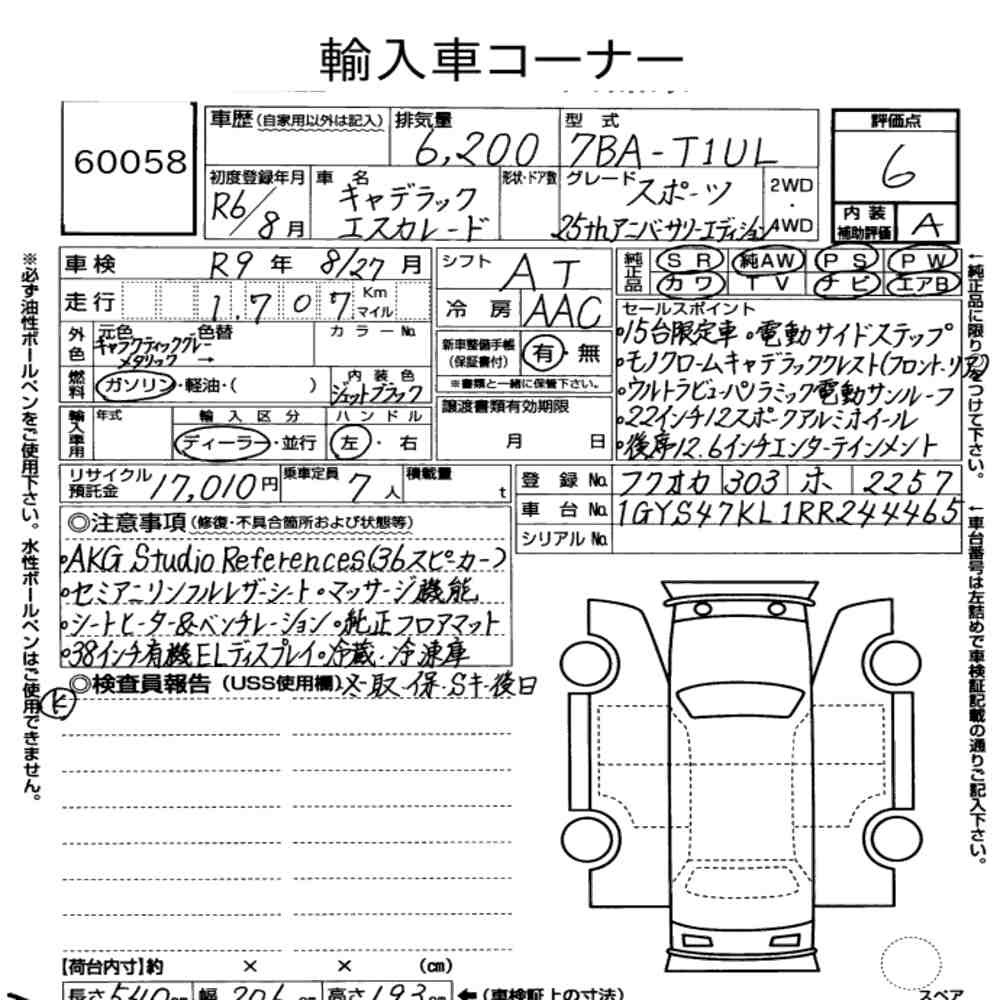 輸入車コーナー
60058
車歴 (自家用以外は記入)
排気量 6,200
型式 7BA-T1UL
評価点 6
初度登録年月 R6/8月
車名 キャデラック エスカレード
形状・ドア数
グレード スポーツ 25thアニバーサリーエディション
2WD・4WD
内装補助評価 A
車検 R9年 8/27月
走行 1,707 Km マイル
シフト AT
冷房 AAC
純正品 SR 純AW PS PW
カワ TV ナビ エアB
外色 元色 色替 カラーNo.
ギャラクティックグレーメタリック →
燃料 ガソリン・軽油・( )
内装色 ジェットブラック
新車整備手帳(保証書付) 有・無
※書類と一緒に保管下さい。
セールスポイント
・15台限定車・電動サイドステップ
・モノクロームキャデラッククレスト(フロント・リア)
・ウルトラビューパノラミック電動サンルーフ
・22インチ12スポークアルミホイール
・後席12.6インチエンターテインメント
輸入車用 年式 輸入区分 ハンドル
ディーラー・並行 左・右
譲渡書類有効期限
月 日
リサイクル預託金 17,010円
乗車定員 7人
積載量 t
登録No. フクオカ 303 ホ 2257
車台No. 1GYS47KL1RR244465
シリアルNo.
◎注意事項 (修復・不具合箇所および状態等)
・AKG Studio References(36スピーカー)
・セミアニリンフルレザーシート・マッサージ機能
・シートヒーター&ベンチレーション・純正フロアマット
・38インチ有機ELディスプレイ・冷蔵・冷凍庫
◎検査員報告 (USS使用欄) 取・保・Sキ後日
【荷台内寸】約 × × (cm)
長さ 540cm 幅 206cm 高さ 193cm ←(車検証上の寸法)
スペア
※必ず油性ボールペンをご使用下さい。水性ボールペンはご使用できません。
←純正品に限り○をつけて下さい。
←車台番号は左詰めで車検証記載の通りご記入下さい。